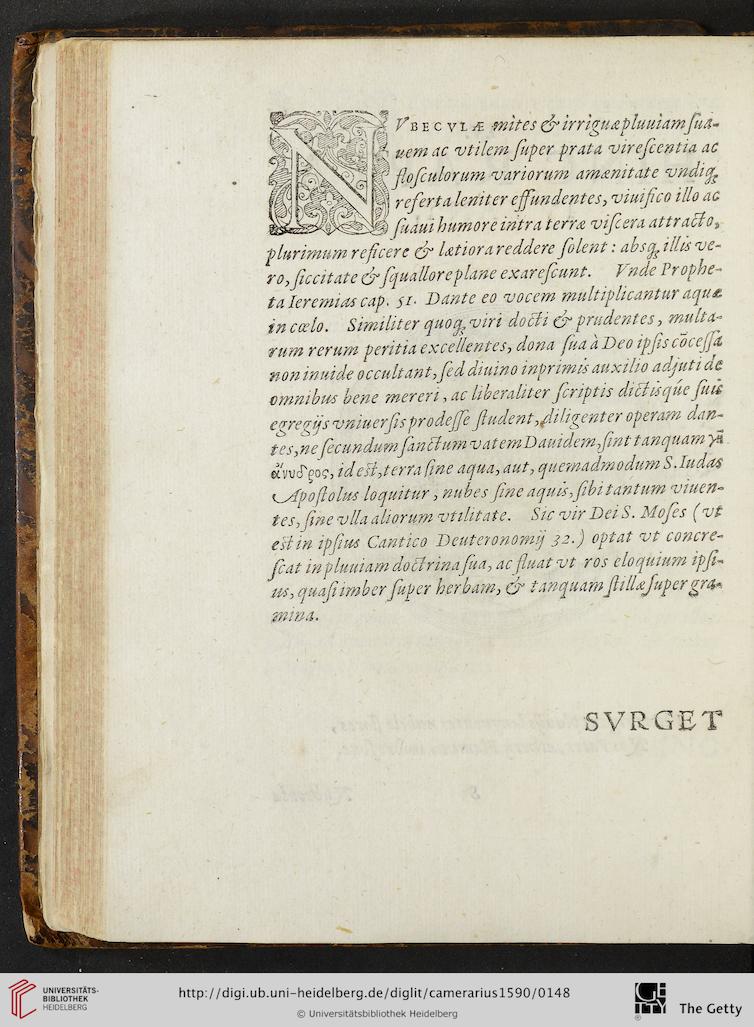 NVBECVLÆ mites & irriguæ pluuiam ſua-
uem ac vtilem ſuper prata vireſcentia ac
floſculorum variorum amænitate vndiq;
referta leniter effundentes, viuifico illo ac
ſuaui humore intra terræ viſcera attracto,
plurimum reficere & lætiora reddere ſolent: absq; illis ve-
ro, ſiccitate & ſquallore plane exareſcunt. Vnde Prophe-
ta Ieremias cap. 51. Dante eo vocem multiplicantur aquæ
in cœlo. Similiter quoq; viri docti & prudentes, multa-
rum rerum peritia excellentes, dona ſua à Deo ipſis cõceſſa
non inuide occultant, ſed diuino inprimis auxilio adjuti de
omnibus bene mereri, ac liberaliter ſcriptis dictisqúe ſuis
egregijs vniuerſis prodeſſe ſtudent, diligenter operam dan-
tes, ne ſecundum ſanctum vatem Dauidem, ſint tanquam γῆ
ἄνυδρος, id est, terra ſine aqua, aut, quemadmodum S. Iudas
Apoſtolus loquitur, nubes ſine aquis, ſibi tantum viuen-
tes, ſine vlla aliorum vtilitate. Sic vir Dei S. Moſes (vt
est in ipſius Cantico Deuteronomij 32.) optat vt concre-
ſcat in pluuiam doctrina ſua, ac fluat vt ros eloquium ipſi-
us, quaſi imber ſuper herbam, & tanquam ſtillæ ſuper gra-
mina.
SVRGET
UNIVERSITÄTS-
BIBLIOTHEK
HEIDELBERG
http://digi.ub.uni-heidelberg.de/diglit/camerarius1590/0148
© Universitätsbibliothek Heidelberg
The Getty